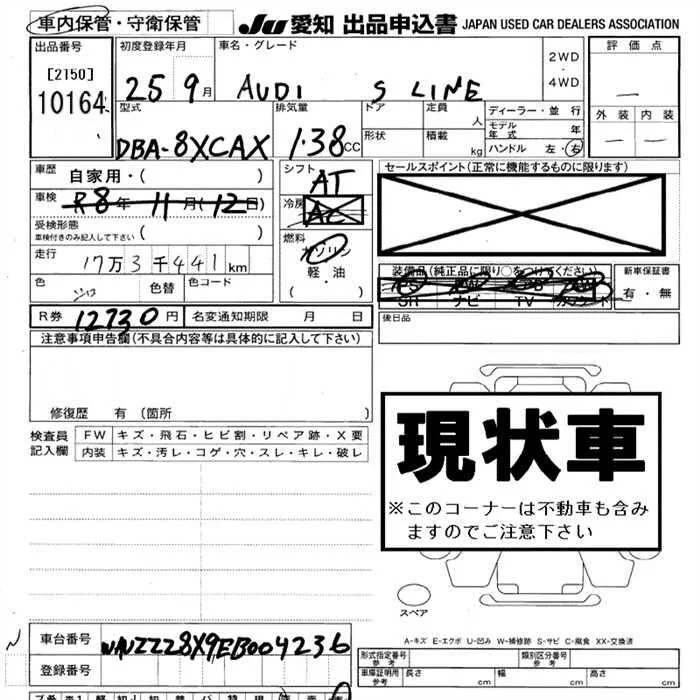 車内保管・守衛保管
JU 愛知 出品申込書 JAPAN USED CAR DEALERS ASSOCIATION
出品番号 初度登録年月 車名・グレード 評価点
[2150] 25 9月 AUDI S LINE 2WD・4WD —
10164
型式 排気量 ドア 定員 ディーラー・並行 外装 内装
人 モデル年式 年
DBA-8XCAX 1.38CC 形状 積載 kg ハンドル 左・右 — —
車歴 自家用・( ) シフト AT セールスポイント(正常に機能するものに限ります)
車検 R8年 11月(12日) 冷房 AC
受検形態
車検付きのみ記入して下さい ( ) 燃料 ガソリン
走行 17万3千441km 軽・油 装備品(純正品に限り○をつけてください) 新車保証書
色 シロ 色替 色コード (・) SR ナビ TV 有・無
R券 12730円 名変通知期限 月 日 後日品
注意事項申告欄(不具合内容等は具体的に記入して下さい)
修復歴 有(箇所 )
検査員 FW キズ・飛石・ヒビ割・リペア跡・X要
記入欄 内装 キズ・汚レ・コゲ・穴・スレ・キレ・破レ
現状車
※このコーナーは不動車も含み
ますのでご注意下さい
スペア
A-キズ E-エクボ U-凹み W-補修跡 S-サビ C-腐食 XX-交換済
車台番号 WAUZZZ8X9EB004236
形式指定番号 参考 類別区分番号 参考
登録番号 車庫証明用 参考 長さ cm 幅 cm 高さ cm